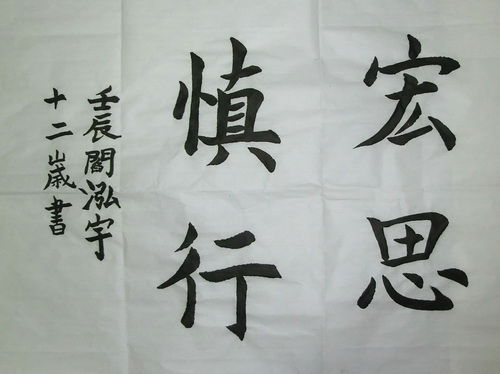 宏思
慎行
壬辰閻泓宇
十二歲書